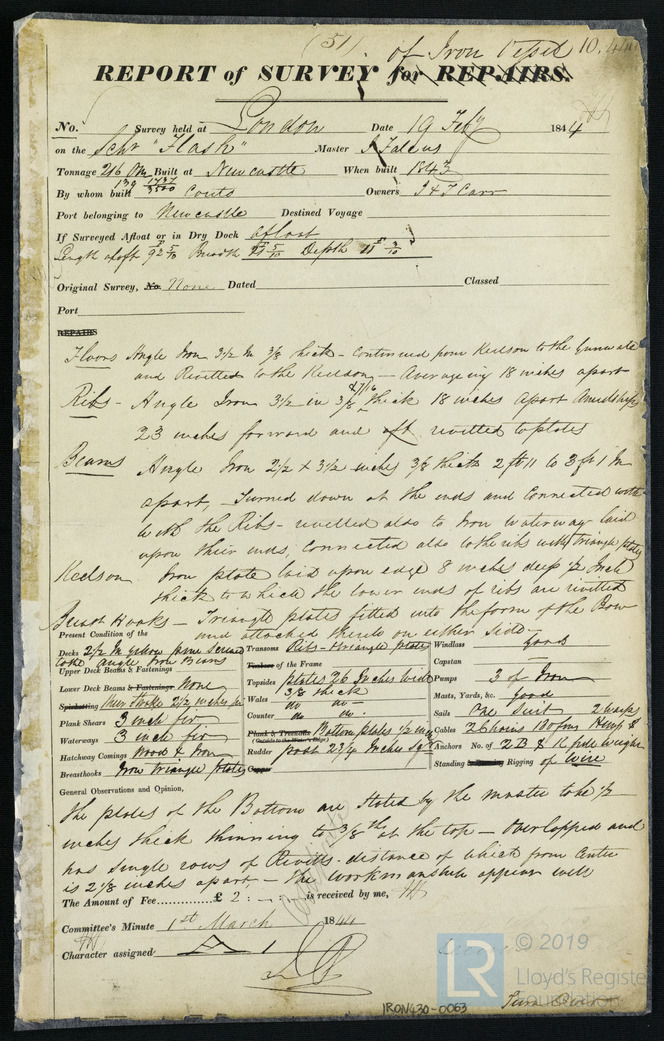 (51). of Iron Vessel 10.
REPORT of SURVEY for REPAIRS.
No. Survey held at London Date 19 Feby 1844
on the Schr "Flash" Master J Falcus
Tonnage 216 Om Built at Newcastle When built 1843
139 1737/3500
By whom built Couts Owners J & T Carr
Port belonging to Newcastle Destined Voyage
If Surveyed Afloat or in Dry Dock afloat
Length aloft 92 5/10 Breadth 5/10 Depth 11 3/10
Original Survey, No. None Dated Classed
Port
REPAIRS
Floors Angle Iron 3½ In 3/8 thick - Continued from Keelson to the Gunwale
and Rivetted to the Keelson - Averageing 18 inches apart
Ribs - Angle Iron 3½ in 3/8 & 7/16 thick 18 inches apart Amidships
23 inches forward and aft rivetted to plates
Beams Angle Iron 2½ x 3½ inches 3/8 thick 2 ft 11 to 3 ft 1 In
apart, - Turned down at the ends and Connected with
with the Ribs - rivetted also to Iron Waterway laid
upon their ends, Connected also to the ribs with triangle plates
Keelson Iron plate laid upon edge 8 inches deep ½ Inch
thick to which the lower ends of ribs are rivetted
Breast Hooks - Triangle plates fitted into the form of the Bow
and attached thereto on either side -
Present Condition of the
Decks 2½ In Yellow pine Screwed
to the angle Iron Beams
Upper Deck Beams & Fastenings
Lower Deck Beams & Fastenings None
Spirketting Shear Strake 2½ inches fir
Plank Shears 3 inch fir
Waterways 3 inch fir
Hatchway Comings Wood & Iron
Breasthooks Iron triangle plates
Transoms Ribs - & triangle plates
Timbers of the Frame
Topsides plates 26 Inches wide
3/8 thick
Wales do do
Counter do do
Plank & Treenails Bottom plates ½ inch
(Outside to the Water's Edge)
Rudder post 2¾ Inches Sqr
Copper
Windlass good
Capstan
Pumps 3 of Iron
Masts, Yards, &c. good
Sails One Suit 2 Warps
Cables 2 Chains 130 fms Hemp &
Anchors No. of 2 B & 1 K full weight
Standing & Running Rigging of Wire
General Observations and Opinion,
The plates of the Bottom are stated by the master to be ½
inches thick thinning to 3/8th at the top - Overlapped and
has single rows of Rivetts - distance of which from Centre
is 2 1/8 inches apart, - the workmanship appears well
The Amount of Fee............£ 2 : - : - is received by me,
Committee's Minute 1st March 1844
Character assigned A 1
© 2019
LR
Lloyd's Register
Foundation
Turn Over
IRON430-0063